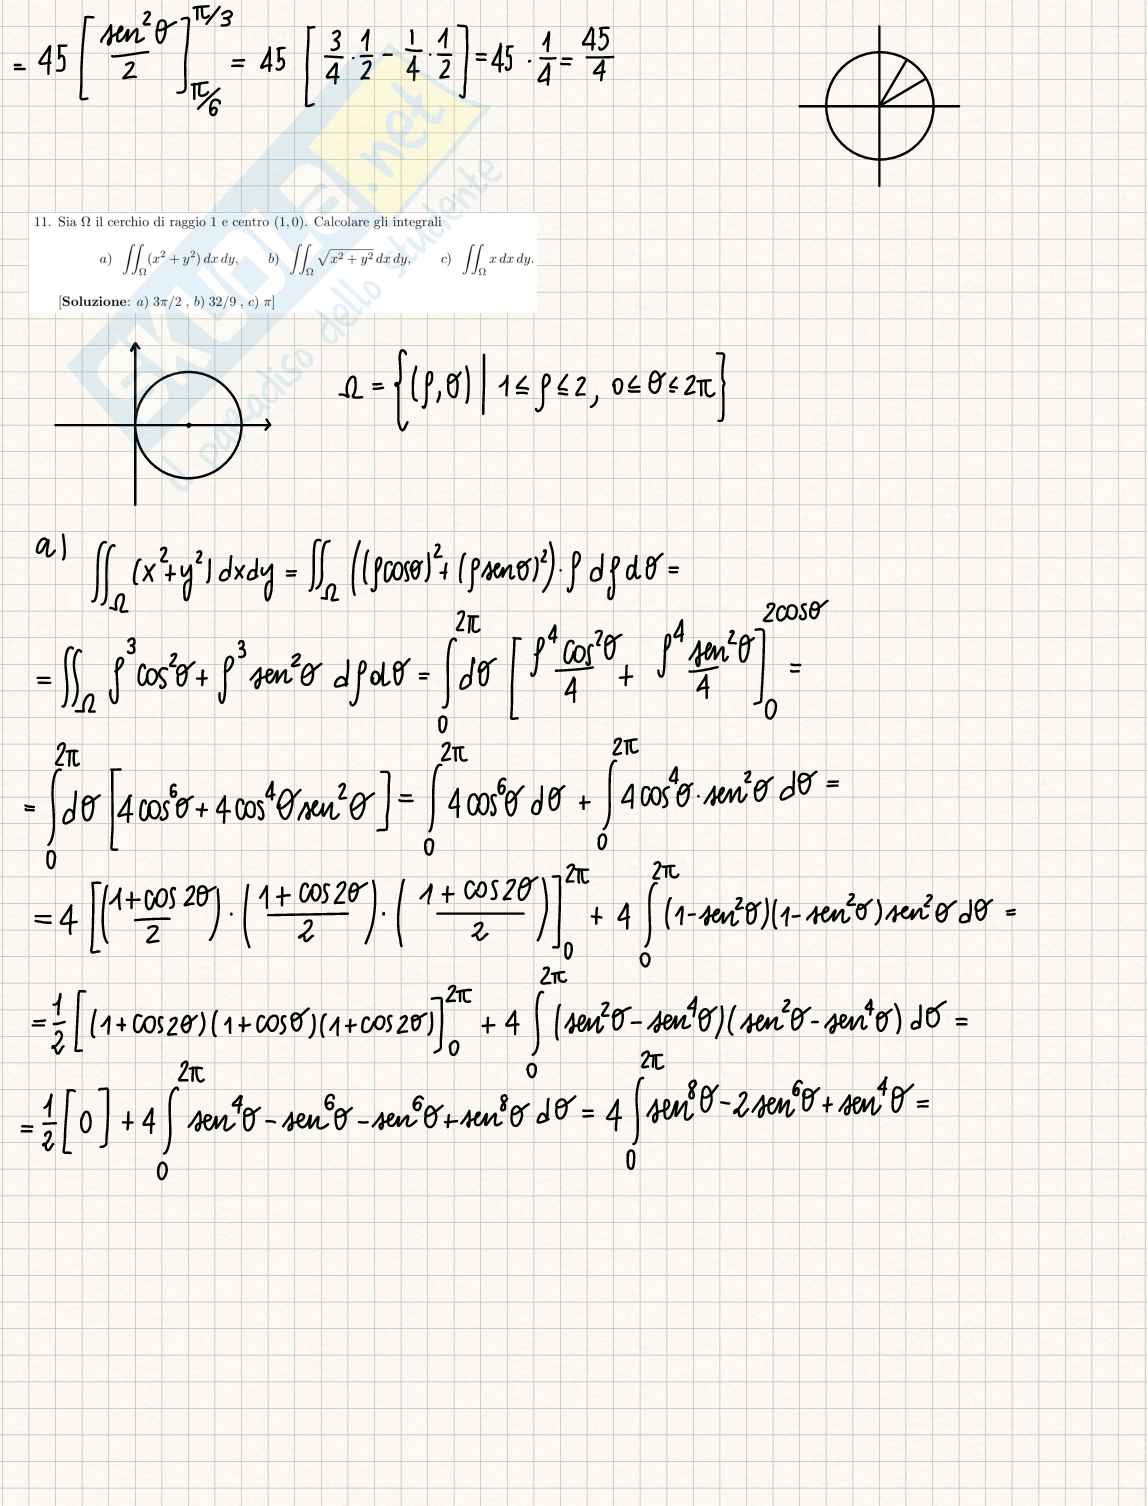 = 45 [sen²θ/2]_{π/6}^{π/3} = 45 [3/4 · 1/2 - 1/4 · 1/2] = 45 · 1/4 = 45/4
11. Sia Ω il cerchio di raggio 1 e centro (1, 0). Calcolare gli integrali
a) ∬_Ω (x² + y²) dx dy, b) ∬_Ω √(x² + y²) dx dy, c) ∬_Ω x dx dy.
[Soluzione: a) 3π/2 , b) 32/9 , c) π]
Ω = {(ρ,θ) | 1 ≤ ρ ≤ 2, 0 ≤ θ ≤ 2π}
a) ∬_Ω (x²+y²) dxdy = ∬_Ω ((ρcosθ)² + (ρsenθ)²) · ρ dρdθ =
= ∬_Ω ρ³cos²θ + ρ³sen²θ dρdθ = ∫_0^{2π} dθ [ρ⁴cos²θ/4 + ρ⁴sen²θ/4]_0^{2cosθ} =
= ∫_0^{2π} dθ [4cos⁶θ + 4cos⁴θsen²θ] = ∫_0^{2π} 4cos⁶θ dθ + ∫_0^{2π} 4cos⁴θ · sen²θ dθ =
= 4 [((1+cos2θ)/2) · ((1+cos2θ)/2) · ((1+cos2θ)/2)]_0^{2π} + 4 ∫_0^{2π} (1-sen²θ)(1-sen²θ)sen²θ dθ =
= 1/2 [(1+cos2θ)(1+cosθ)(1+cos2θ)]_0^{2π} + 4 ∫_0^{2π} (sen²θ-sen⁴θ)(sen²θ-sen⁴θ) dθ =
= 1/2 [0] + 4 ∫_0^{2π} sen⁴θ - sen⁶θ - sen⁶θ + sen⁸θ dθ = 4 ∫_0^{2π} sen⁸θ - 2sen⁶θ + sen⁴θ =
SKUOLA.net
il paradiso dello studente